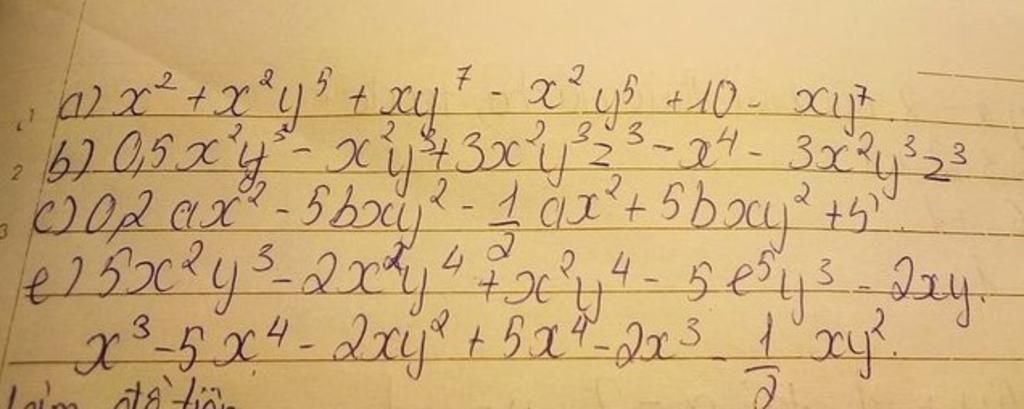 a) x² + x²y⁵ + xy⁷ - x²y⁵ + 10 - xy⁷
b) 0,5x²y³ - x²y³ + 3x²y³z³ - x⁴ - 3x²y³z³
c) 0,2ax² - 5bxy² - 1/2 ax² + 5bxy² + 5
e) 5x²y³ - 2x²y⁴ + x²y⁴ - 5e⁵y³ - 2xy.
x³ - 5x⁴ - 2xy² + 5x⁴ - 2x³ - 1/2 xy².